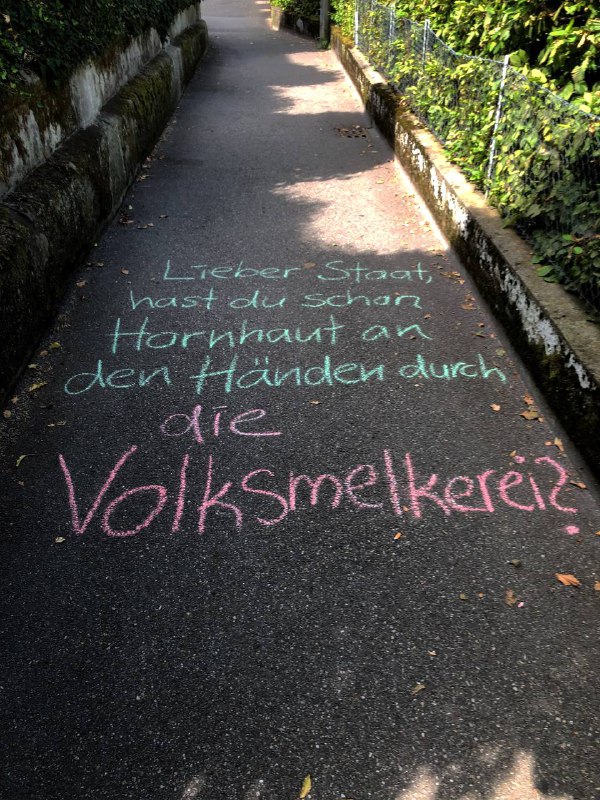 Lieber Staat,
hast du schon
Hornhaut an
den Händen durch
die
Volksmelkerei?